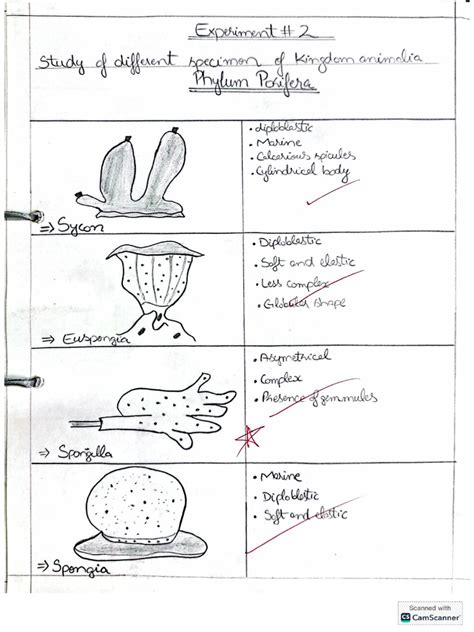 Experiment # 2
Study of different specimon of Kingdom animalia
Phylum Porifera
• diploblastic
• Marine
• Calcarious spicules
• Cylindrical body
⇒ Sycon
• Diploblastic
• Soft and elastic
• Less complex
• Globular shape
⇒ Euspongia
• Asymetrical
• Complex
• Presence of gemmules
⇒ Spongilla
• Marine
• Diploblastic
• Soft and elastic
⇒ Spongia
Scanned with
CS CamScanner